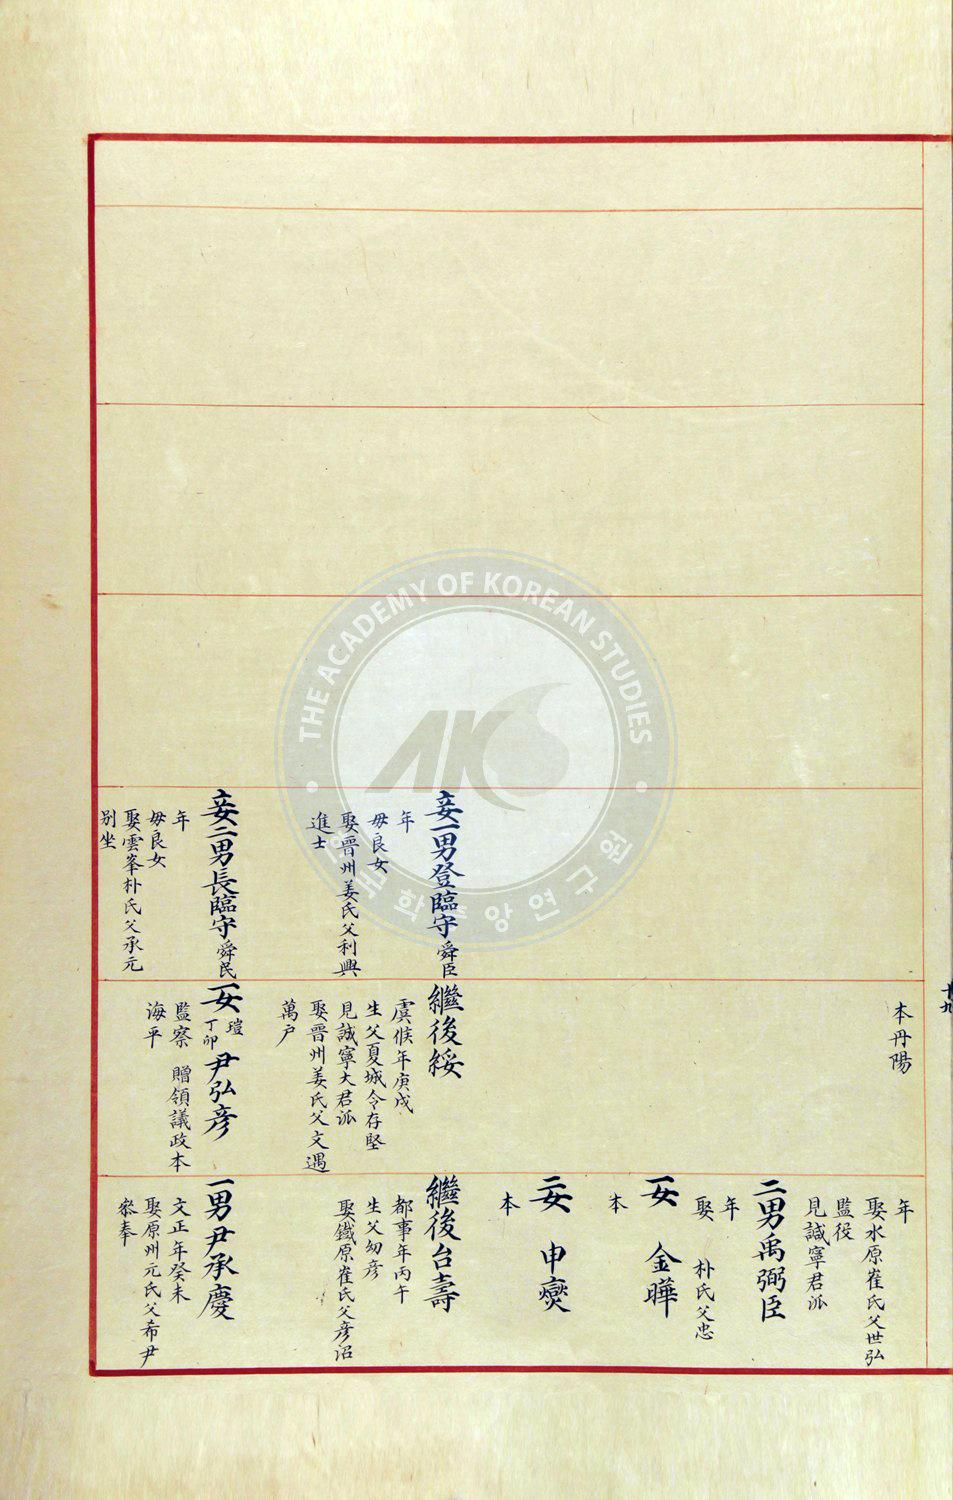 十九
妾一男登臨守舜臣
年
母良女
娶晋州姜氏父利興
進士
妾二男長臨守舜民
年
母良女
娶雲峯朴氏父承元
別坐
本丹陽
繼後綏
虞候年庚戌
生父夏城令存堅
見誠寧大君派
娶晋州姜氏父文遇
萬户
一女瑄丁卯尹弘彦
監察 贈領議政本
海平
年
娶水原崔氏父世弘
監役
見諴寧君派
二男禹弼臣
年
娶 朴氏父忠
一女 金曄
本
二女 申奭
本
繼後台壽
都事年丙午
生父幼彦
娶鐵原崔氏父彦沼
一男尹承慶
文正年癸未
娶原州元氏父希尹
叅奉
THE ACADEMY OF KOREAN STUDIES
AKS
한국학중앙연구원